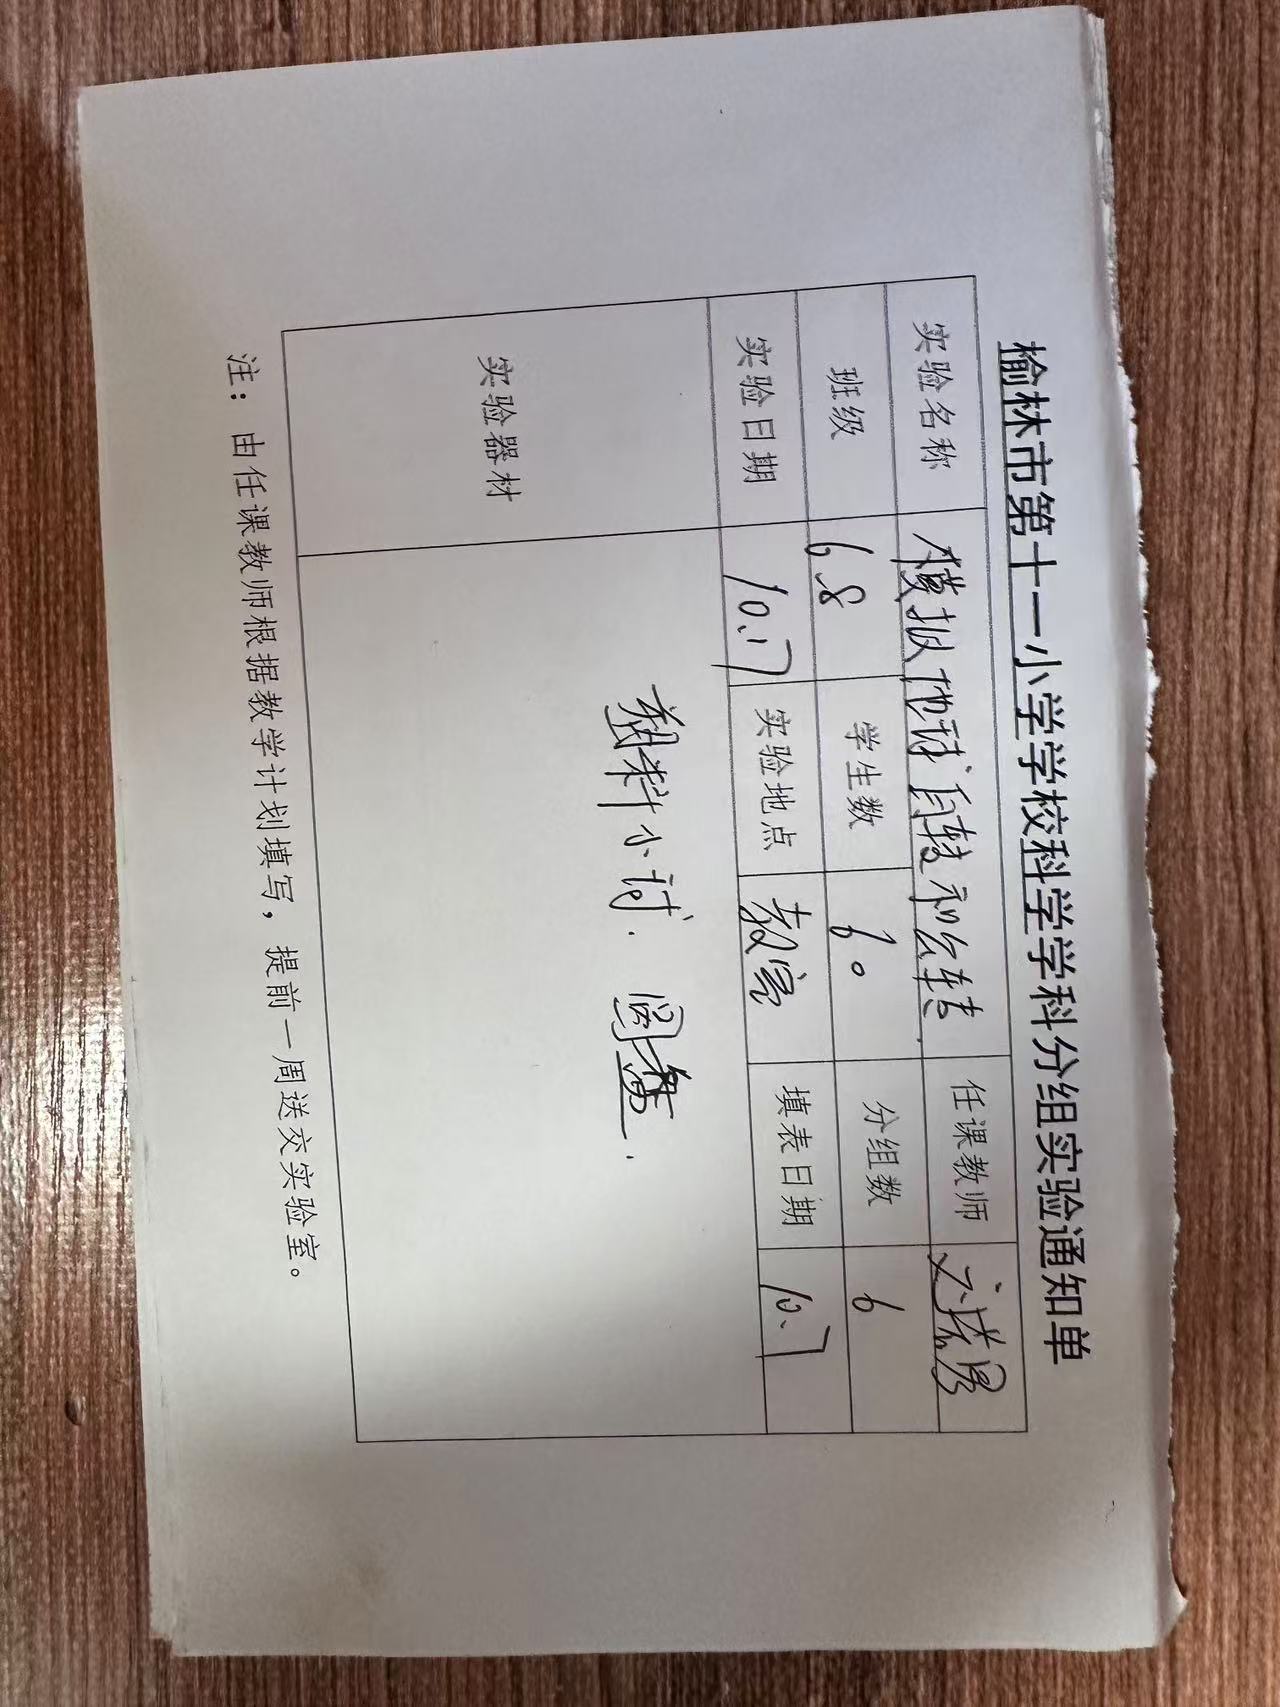 榆林市第十一小学学校科学学科分组实验通知单
实验名称 模拟地球自转和公转 任课教师
班级 6.8 学生数 60 分组数 6
实验日期 10.17 实验地点 教室 填表日期 10.7
实验器材 塑料小球. 圆盘.
注：由任课教师根据教学计划填写，提前一周送交实验室。